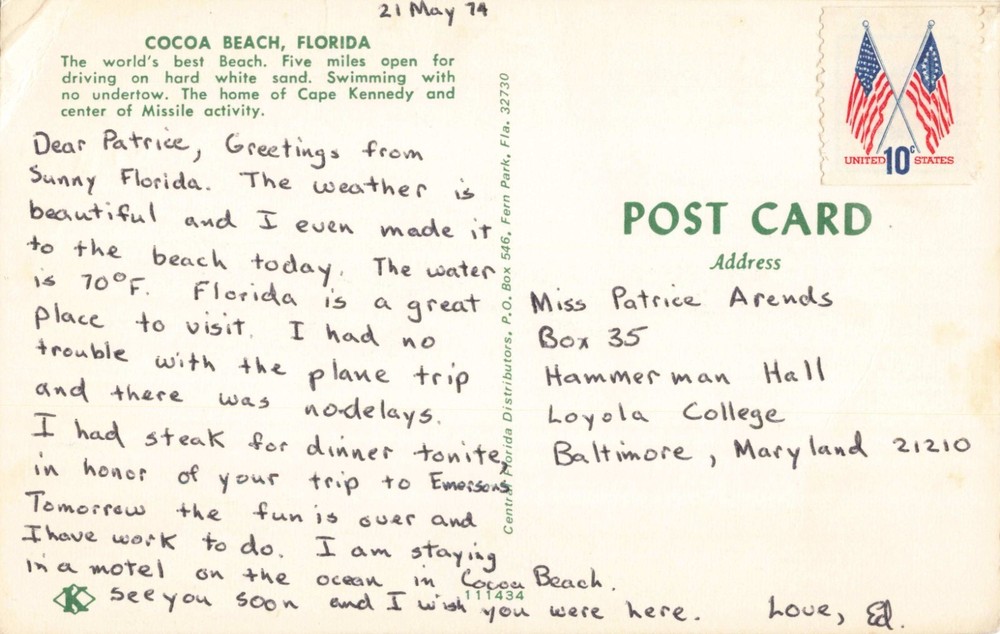 21 May 74
COCOA BEACH, FLORIDA
The world's best Beach. Five miles open for
driving on hard white sand. Swimming with
no undertow. The home of Cape Kennedy and
center of Missile activity.
Dear Patrice, Greetings from
Sunny Florida. The weather is
beautiful and I even made it
to the beach today. The water
is 70°F. Florida is a great
place to visit. I had no
trouble with the plane trip
and there was no delays.
I had steak for dinner tonite,
in honor of your trip to Emersons.
Tomorrow the fun is over and
I have work to do. I am staying
in a motel on the ocean in Cocoa Beach.
See you soon and I wish you were here. Love, Ed.
K
111434
Central Florida Distributors, P.O. Box 546, Fern Park, Fla. 32730
UNITED 10c STATES
POST CARD
Address
Miss Patrice Arends
Box 35
Hammerman Hall
Loyola College
Baltimore, Maryland 21210